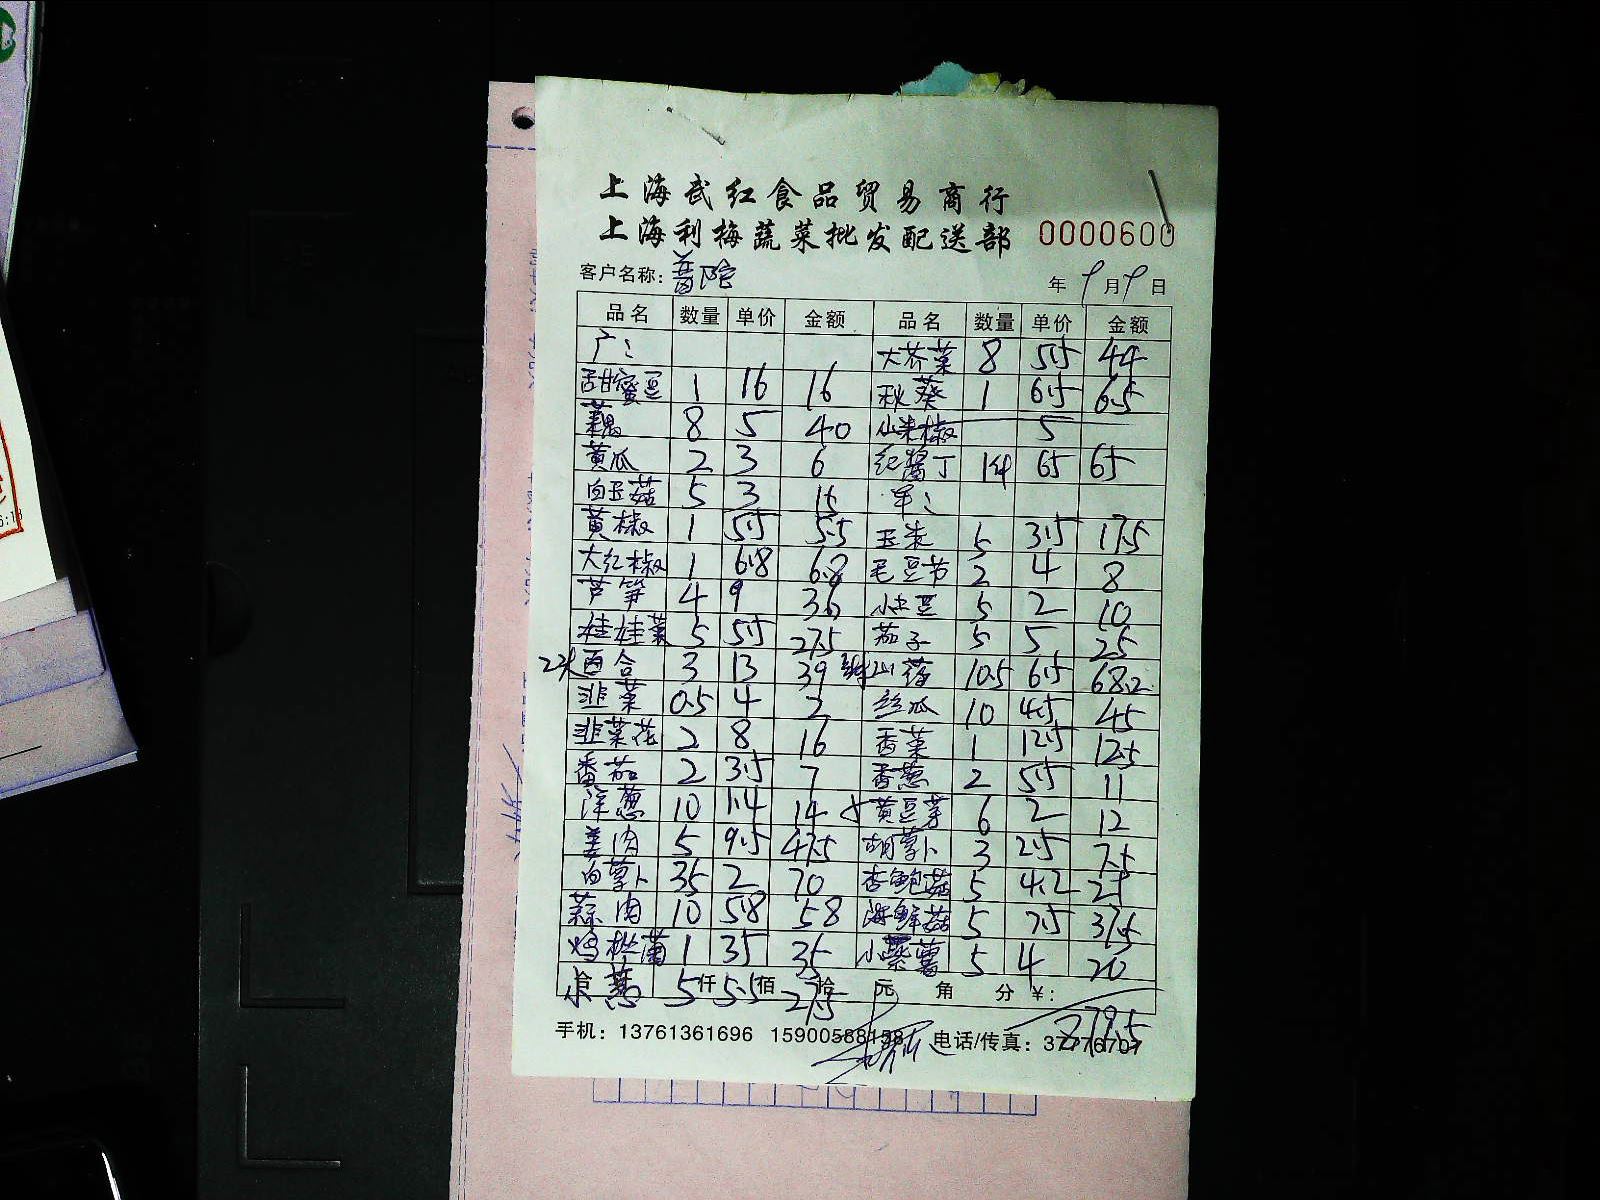 上海武红食品贸易商行
上海利梅蔬菜批发配送部 0000600
客户名称：普陀 年 9月9日
品名 数量 单价 金额 品名 数量 单价 金额
大芥菜 8 5.5 44
甜蜜豆 1 16 16 秋葵 1 6.5 6.5
藕 8 5 40 仙米椒 5
黄瓜 2 3 6 红酱丁 1件 65 65
白玉菇 5 3 15
黄椒 1 5.5 5.5 玉米 5 3.5 17.5
大红椒 1 6.8 6.8 毛豆节 2 4 8
芦笋 4 9 36 小土豆 5 2 10
娃娃菜 5 5.5 27.5 茄子 5 5 25
百合 3 13 39 山药 10.5 6.5 68.2
韭菜 0.5 4 2 丝瓜 10 4.5 45
韭菜花 2 8 16 香菜 1 12.5 12.5
番茄 2 3.5 7 香葱 2 5.5 11
洋葱 10 1.4 14 黄豆芽 6 2 12
姜肉 5 9.5 47.5 胡萝卜 3 2.5 7.5
白萝卜 35 2 70 杏鲍菇 5 4.2 21
蒜肉 10 5.8 58 海鲜菇 5 7.5 37.5
鸡枞菌 1 35 35 小紫薯 5 4 20
5 仟 5.5 佰 拾 27.5 元 角 分 ¥：
手机：13761361696 15900588158 电话/传真：37776707
879.5